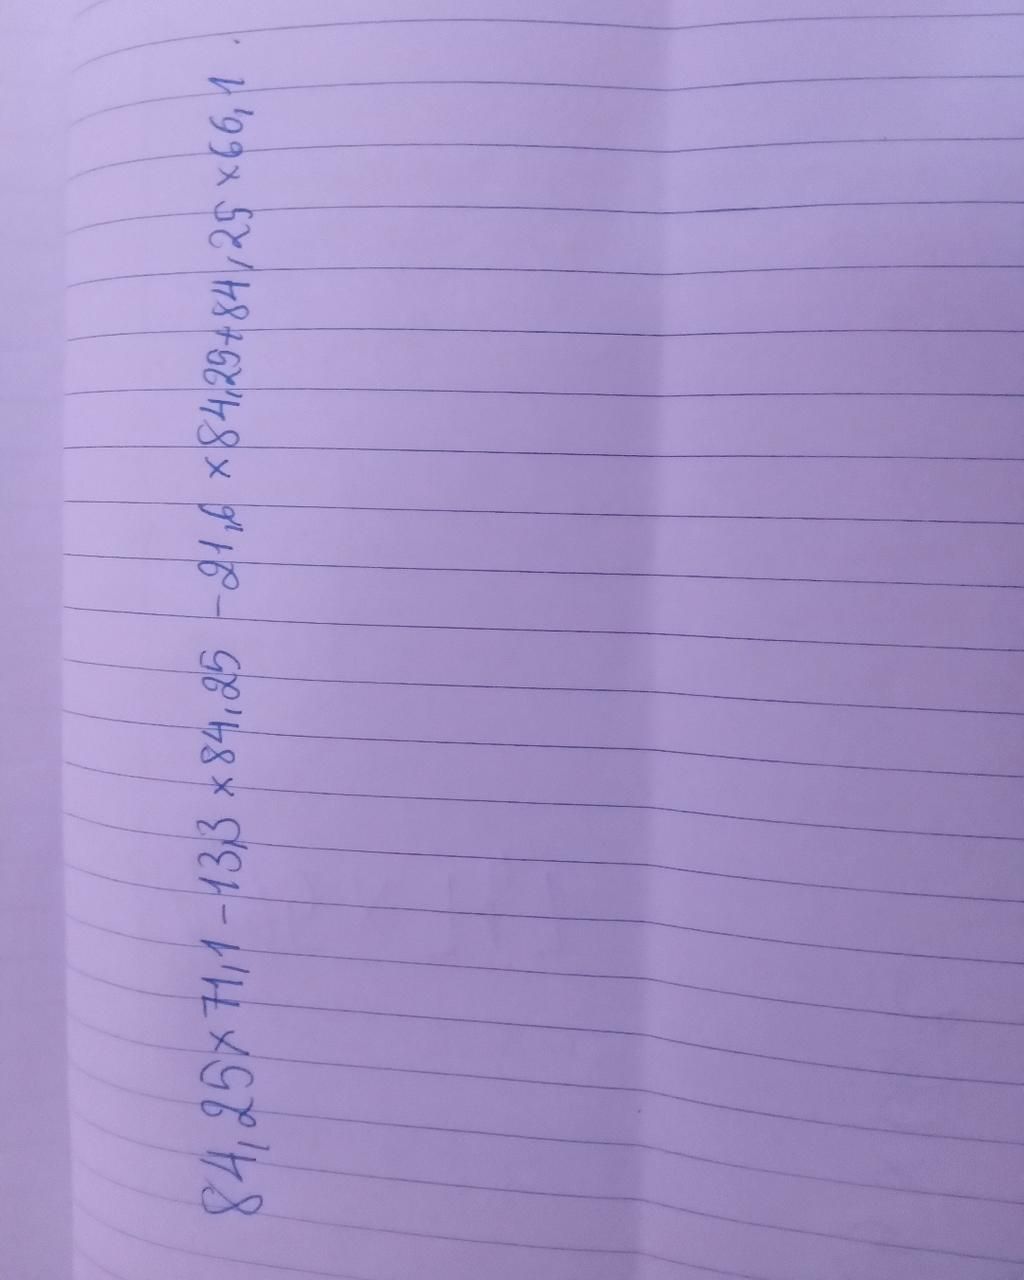 84,25 x 71,1 - 13,3 x 84,25 - 21,6 x 84,25 + 84,25 x 66,1.